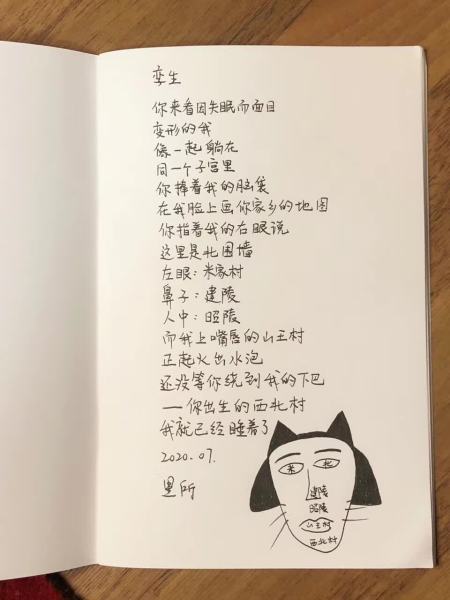 孪生
你来看因失眠而面目
变形的我
像一起躺在
同一个子宫里
你捧着我的脑袋
在我脸上画你家乡的地图
你指着我的右眼说
这里是北围墙
左眼：米家村
鼻子：建陵
人中：昭陵
而我上嘴唇的山王村
正起火出水泡
还没等你绕到我的下巴
——你出生的西北村
我就已经睡着了
2020.07.
里所
米 北
建陵
昭陵
山王村
西北村